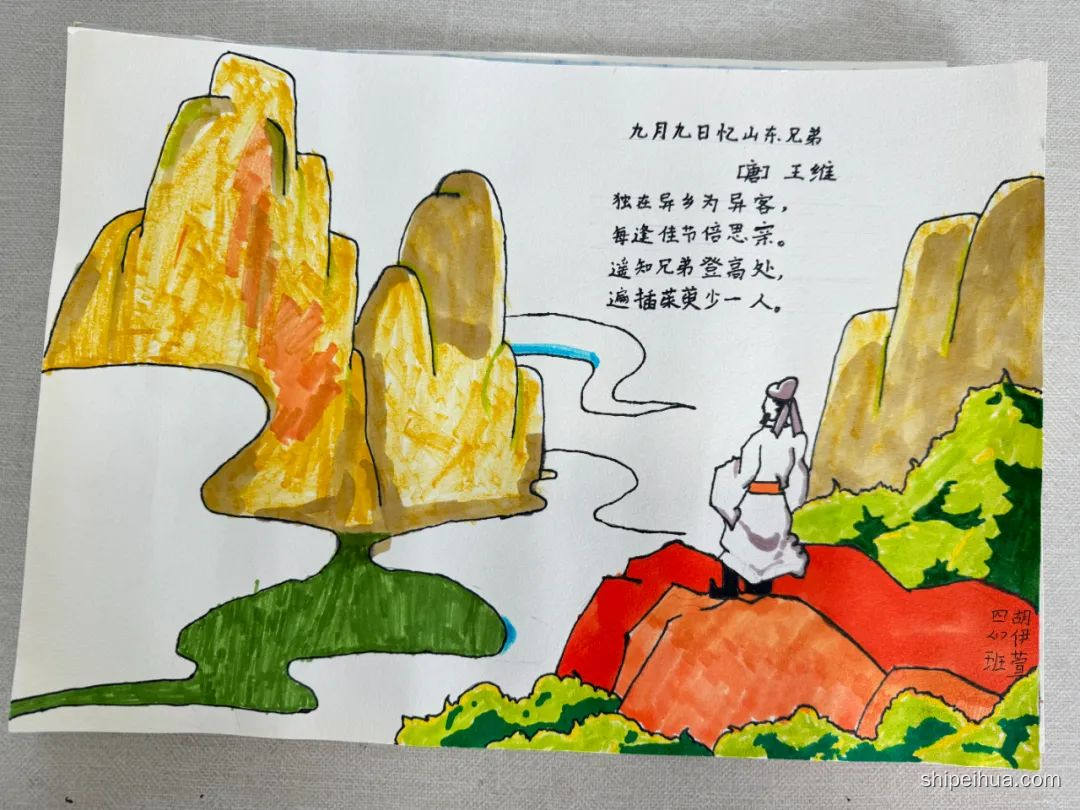 九月九日忆山东兄弟
[唐] 王维
独在异乡为异客，
每逢佳节倍思亲。
遥知兄弟登高处，
遍插茱萸少一人。
胡伊萱
四（4）班
shipeihua.com